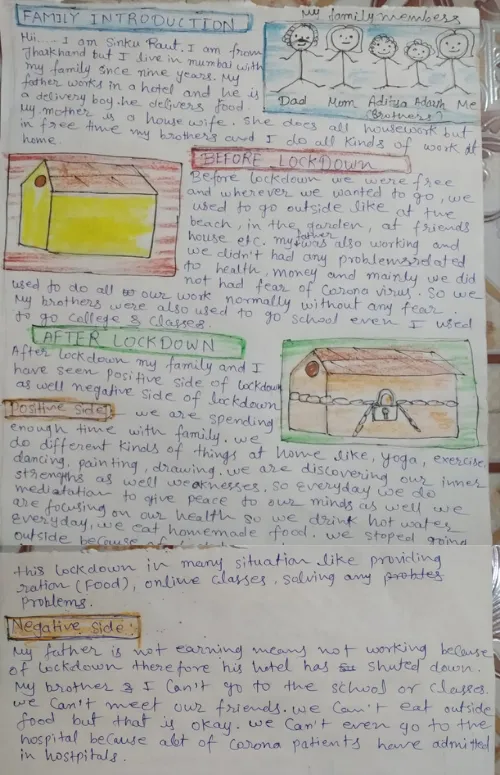 FAMILY INTRODUCTION
My family members
Hii..... I am Sinku Raut. I am from
Jharkhand but I live in mumbai with
my family since nine years. My
father works in a hotel and he is
a delivery boy. he delivers food.
My mother is a house wife. She does all housework but
in free time my brothers and I do all kinds of work at
home.
Dad Mom Aditya Adarsh Me
(Brothers)
BEFORE LOCKDOWN
Before lockdown we were free
and wherever we wanted to go, we
used to go outside like at the
beach, in the garden, at friends
house etc. my father was also working and
we didn't had any problems related
to health, money and mainly we did
not had fear of Corona virus. So we
used to do all our work normally without any fear
My brothers were also used to go school even I used
to go college & classes.
AFTER LOCKDOWN
After lockdown my family and I
have seen positive side of lockdown
as well negative side of lockdown
Positive side:- we are spending
enough time with family. we
do different kinds of things at home like, yoga, exercise,
dancing, painting, drawing. we are discovering our inner
strengths as well weaknesses. So everyday we do
mediatation to give peace to our minds as well we
are focusing on our health so we drink hot water
everyday, we eat homemade food. we stoped going
outside because of
this lockdown in many situation like providing
ration (food), online classes, solving any probltes
problems.
Negative side:
My father is not earning means not working because
of lockdown therefore his hotel has shuted down.
My brother & I can't go to the school or classes.
we can't meet our friends. we can't eat outside
food but that is okay. we can't even go to the
hospital because alot of corona patients have admitted
in hostpitals.